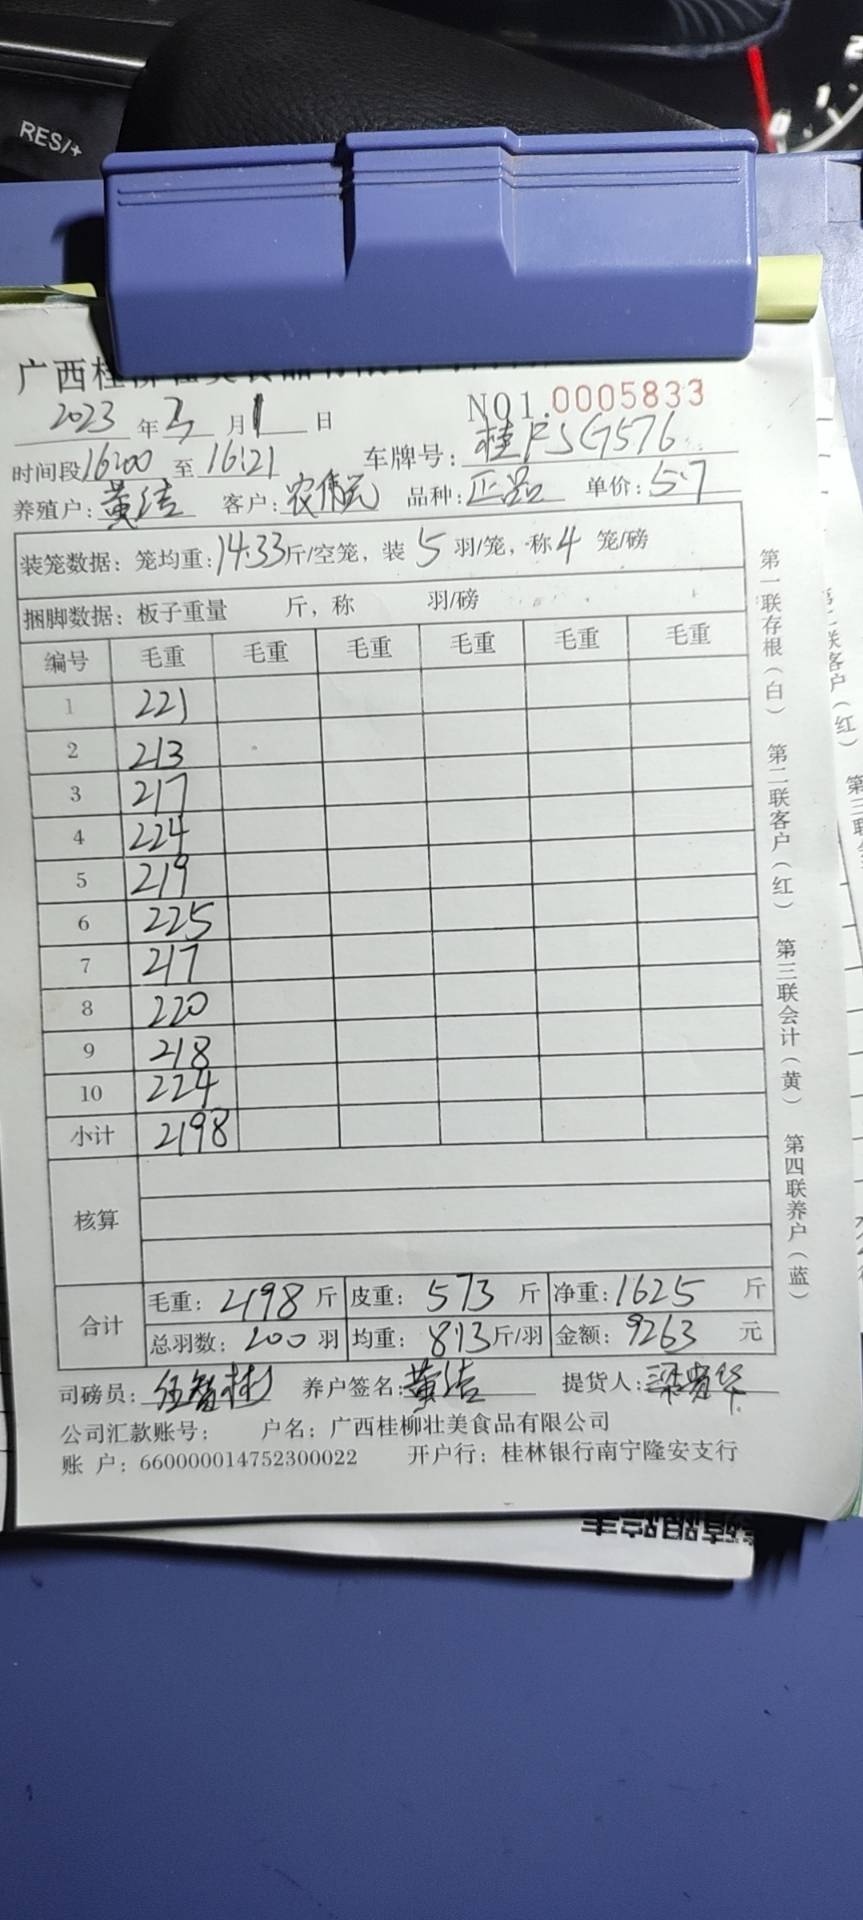 RES/+
2
1
0
广西桂
NO1.0005833
2023年3月1日
时间段16:00至16:21 车牌号:桂FSG576
养殖户:黄洁 客户:农伟 品种:正品 单价:5.7
装笼数据:笼均重:14.33斤/空笼,装5羽/笼,称4笼/磅
捆脚数据:板子重量 斤,称 羽/磅
编号 毛重 毛重 毛重 毛重 毛重
1 221
2 213
3 217
4 224
5 219
6 225
7 217
8 220
9 218
10 224
小计 2198
核算
合计 毛重:2198斤 皮重:573斤 净重:1625斤
总羽数:200羽 均重:8.13斤/羽 金额:9263元
司磅员:伍智彬 养户签名:黄洁 提货人:梁
公司汇款账号: 户名:广西桂柳壮美食品有限公司
账 户:660000014752300022 开户行:桂林银行南宁隆安支行
第一联存根(白) 第二联客户(红) 第三联会计(黄) 第四联养户(蓝)
联客户(红)
第三联